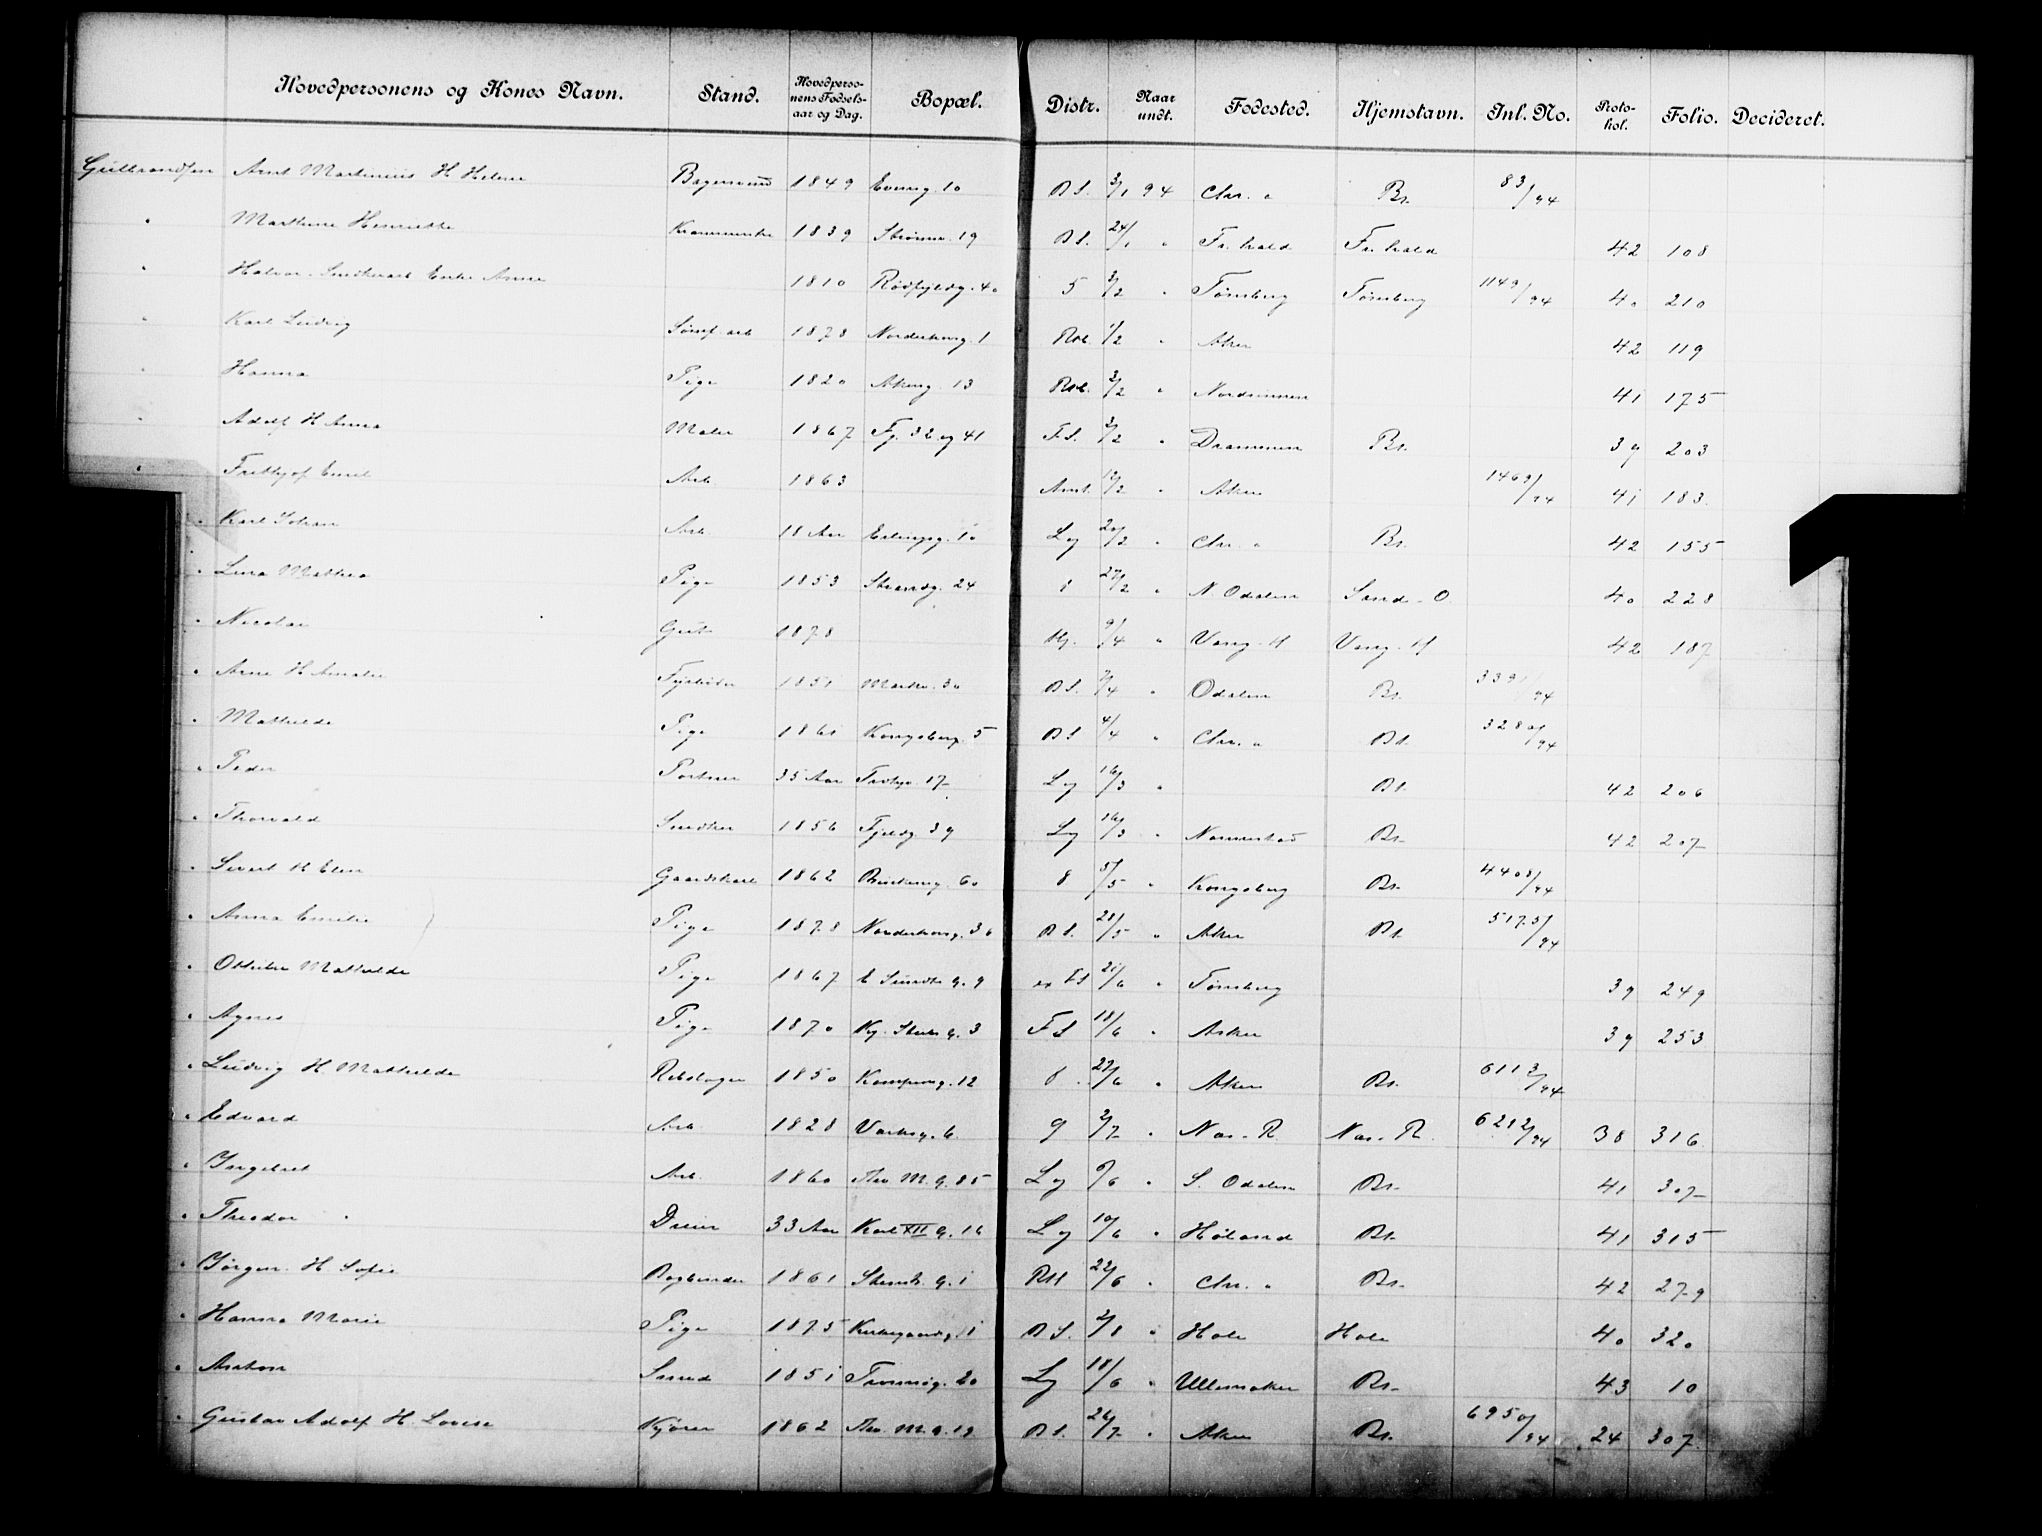 Hovedpersonens og Kones Navn. Stand. Hovedpersonens Fødselsaar og Dag. Bopæl. Distr. Naar undt. Fødested. Hjemstavn. Inl. No. Protokol. Folio. Decideret.
Gulbrandsen Arnt Martinius H. Helene Bagersvend 1849 10 B S. 3/1 94 Chr. " Br. 83/94
" Marthine Henriette 1839 Strømsv. 19 B S. 24/1 " Fr.hald Fr.hald 42 108
" Halvor Snedkerarb Enke Anne 1810 Rødfyldg. 40 5 3/2 " Tønsberg Tønsberg 1149/94 40 210
" Karl Ludvig 1878 Norderhovg. 1 1/2 " Aker 42 119
" Hanna Pige 1820 Akersg. 13 3/2 " Nordsinnen 41 175
" Adolf H Anna Maler 1867 Fg. 32 og 41 F S. 3/2 " Drammen Br. 39 203
" Frithjof Emil Arb. 1863 12/2 " Aker 1469/94 41 183
" Karl Johan Arb. 18 Aar Erlingsg. 10 Lg 20/2 " Chr. " Br. 42 155
" Lina Mathea Pige 1853 Strandg. 24 1 27/2 " N. Odalen Sand - O. 40 228
" Nicolai Gut 1878 9/4 " Vang - H Vang - H 42 187
" Arne H Amalie Fyrbøder 1851 Markv. 30 B S. 7/4 " Odalen Br. 3391/94
" Mathilde Pige 1861 Kongsberg. 5 B S 4/4 " Chr. " Br. 3280/94
" Peder Portner 35 Aar 17 Lg 16/3 " Br. 42 206
" Thorvald Snedker 1856 Fjeldg. 39 Lg 16/3 " Nannestad Br. 42 207
" Sivert H Elen Gaardskarl 1862 60 8 5/5 " Kongsberg Br. 4408/94
" Anna Emilie Pige 1878 Norderhovg. 36 B S. 28/5 " Aker Br. 5175/94
" Ottilie Mathilde Pige 1867 E Sundts g. 9 21/6 " Tønsberg 39 249
" Agnes Pige 1870 Kg. g. 3 F S 18/6 " Asker 39 253
" Ludvig H. Mathilde Rebslager 1850 Kampeng. 12 8 27/6 " Aker Br. 6113/94
" Edvard Arb. 1828 Verksg. 6. 9 2/7 " Nes - R. Nes - R. 6212/94 38 316
" Ingebret Arb. 1860 Thv. M. g. 85 Lg 9/6 " S. Odalen Br. 41 307
" Theodor Dreier 33 Aar Karl XII g. 16 Lg 10/6 " Høland Br. 41 315
" Jørgen H. Sofie Bogbinder 1861 Stensb. g. 1 22/6 " Chr. " Br. 42 279
" Hanna Marie Pige 1875 Kirkegaardg. 11 B S. 2/8 " Hole Hole 40 320
" Smed 1851 Tromsøg. 20 Lg 18/6 " Ullensaker Br. 43 10
" Gustav Adolf H. Lovise Kjører 1862 Thv. M. g. 19 B S. 26/7 " Aker Br. 6950/94 24 307